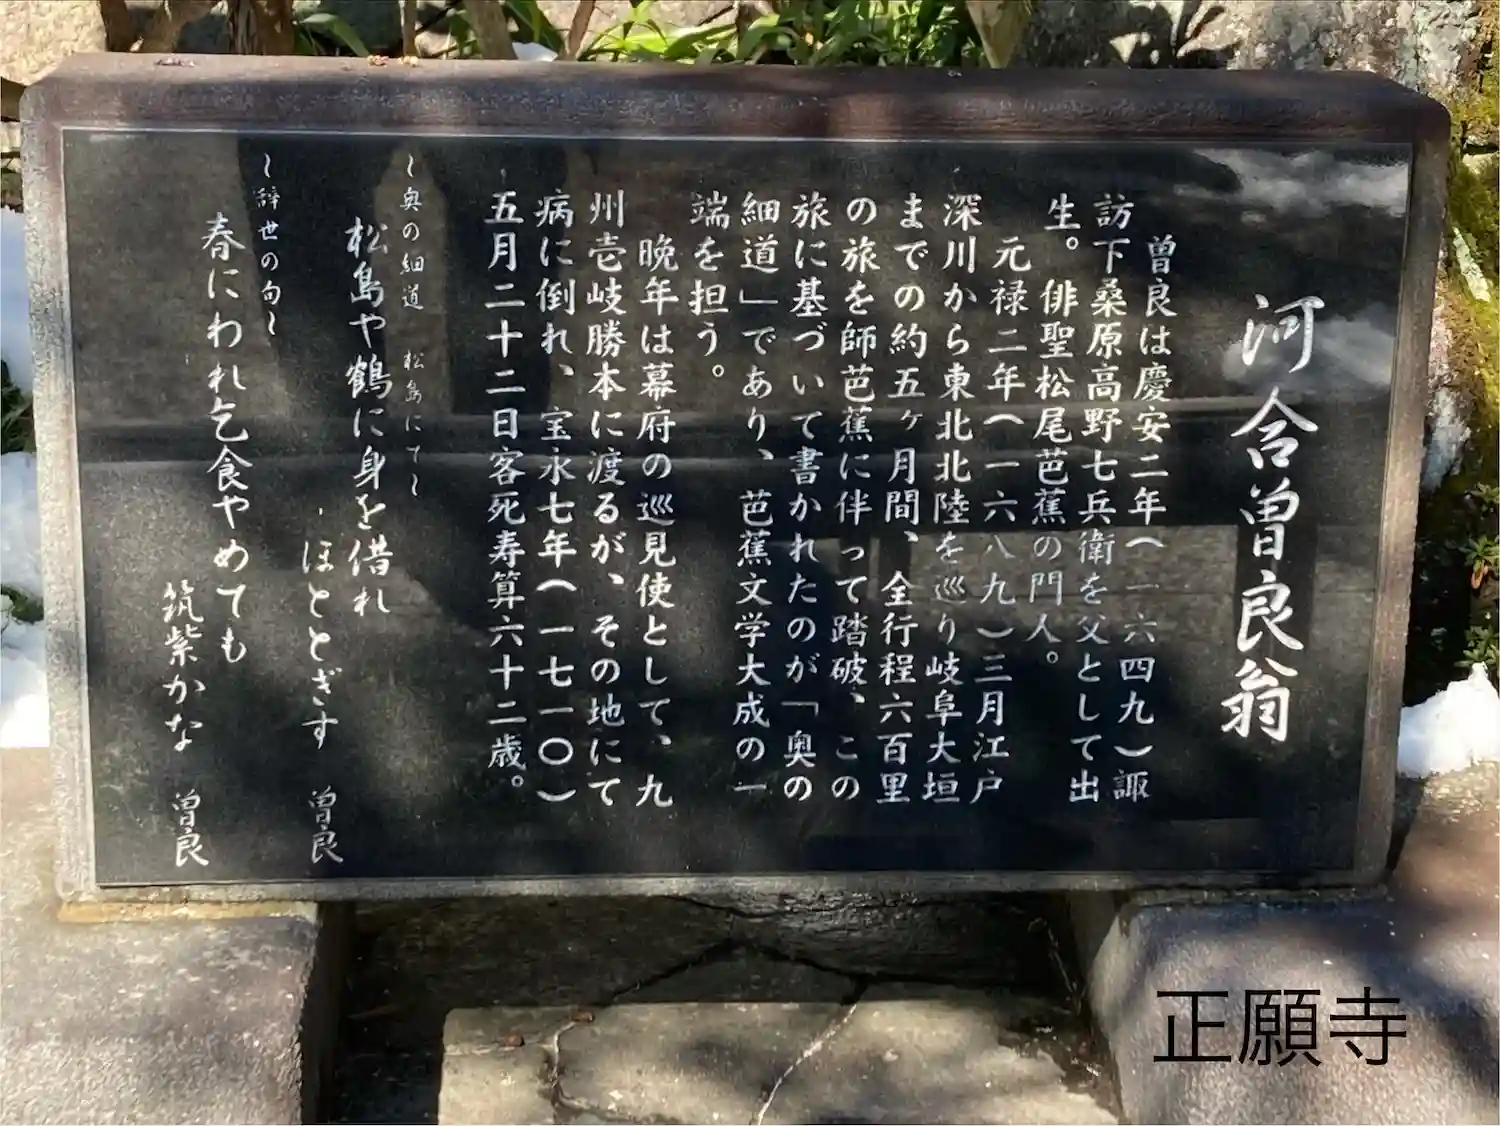 河合曽良翁
曽良は慶安二年(一六四九)諏
訪下桑原高野七兵衛を父として出
生。俳聖松尾芭蕉の門人。
元禄二年(一六八九)三月江戸
深川から東北北陸を巡り岐阜大垣
までの約五ヶ月間、全行程六百里
の旅を師芭蕉に伴って踏破、この
旅に基づいて書かれたのが「奥の
細道」であり、芭蕉文学大成の一
端を担う。
晩年は幕府の巡見使として、九
州壱岐勝本に渡るが、その地にて
病に倒れ、宝永七年(一七一〇)
五月二十二日客死寿算六十二歳。
~奥の細道 松島にて~
松島や鶴に身を借れ
ほととぎす 曽良
~辞世の句~
春にわれ乞食やめても
筑紫かな 曽良
正願寺